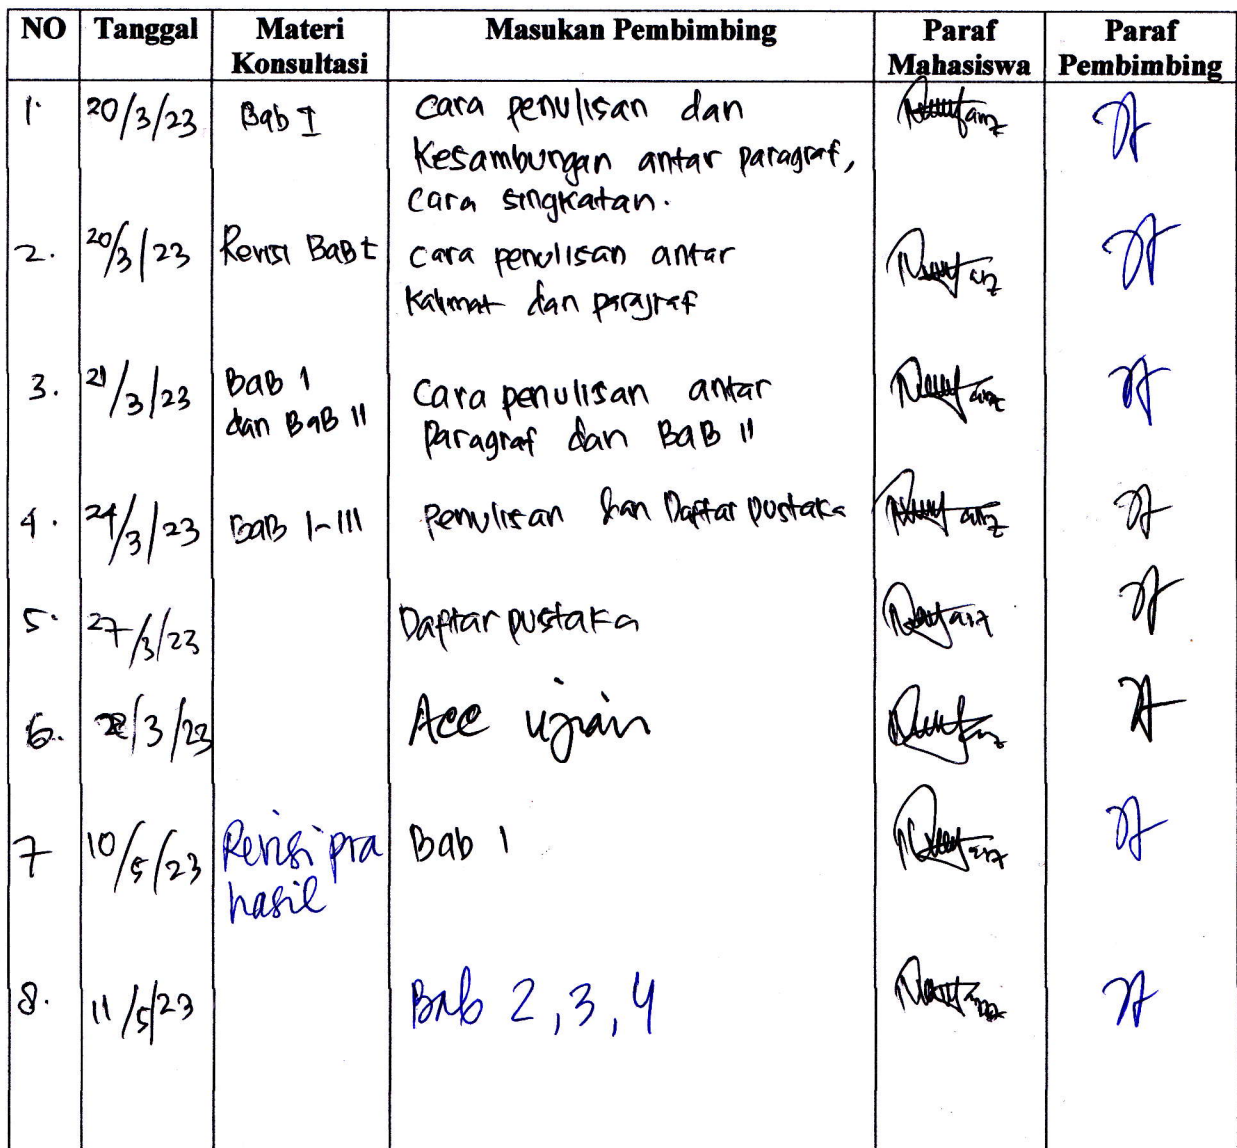 NO Tanggal Materi Konsultasi Masukan Pembimbing Paraf Mahasiswa Paraf Pembimbing
1. 20/3/23 Bab I Cara penulisan dan
Kesambungan antar paragraf,
Cara singkatan.
2. 20/3/23 Revisi BaB I Cara penulisan antar
Kalimat dan paragraf
3. 21/3/23 BaB I Cara penulisan antar
dan BaB II Paragraf dan BaB II
4. 24/3/23 BaB I-III Penulisan dan Daftar pustaka
5. 27/3/23 Daftar pustaka
6. /3/23 Acc ujian
7 10/5/23 Revisi pra Bab 1
hasil
8. 11/5/23 Bab 2, 3, 4